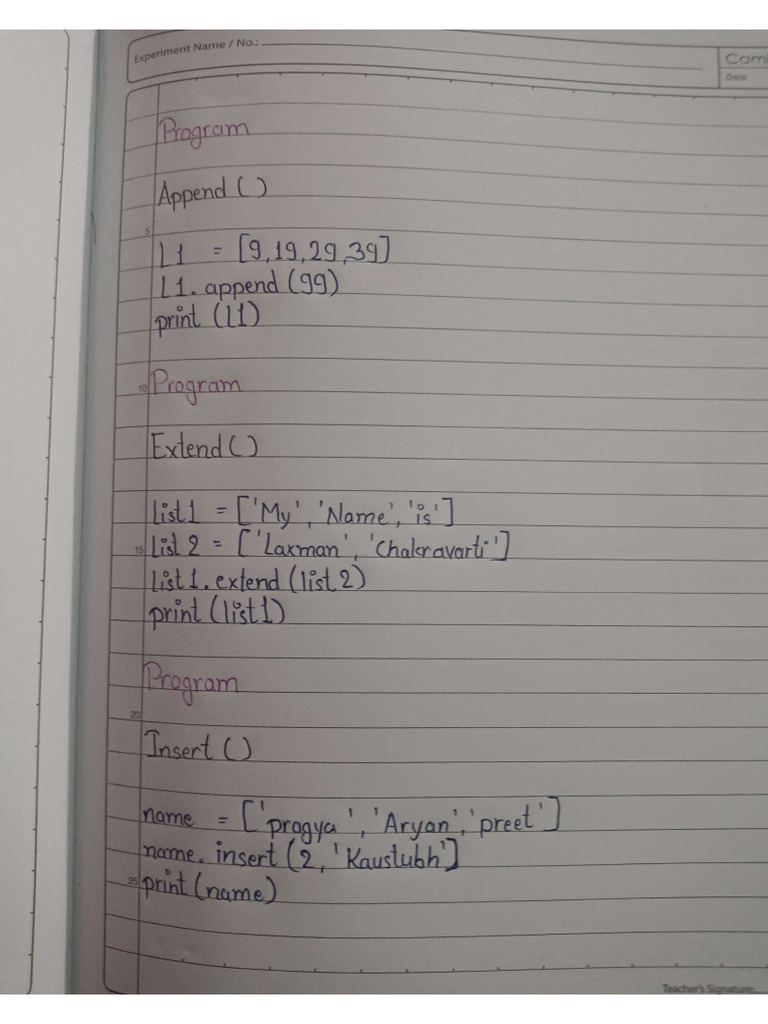 Experiment Name / No.:
Cam
Date
Program
Append ( )
5
L1 = [9,19,29,39]
L1. append (99)
print (L1)
10 Program
Extend ( )
list1 = ['My', 'Name', 'is']
15 list 2 = ['Laxman', 'Chakravarti']
list 1. extend (list 2)
print (list 1)
Program
20
Insert ( )
name = ['pragya', 'Aryan', 'preet']
name. insert (2, 'Kaustubh']
25 print (name)
Teacher's Signature: